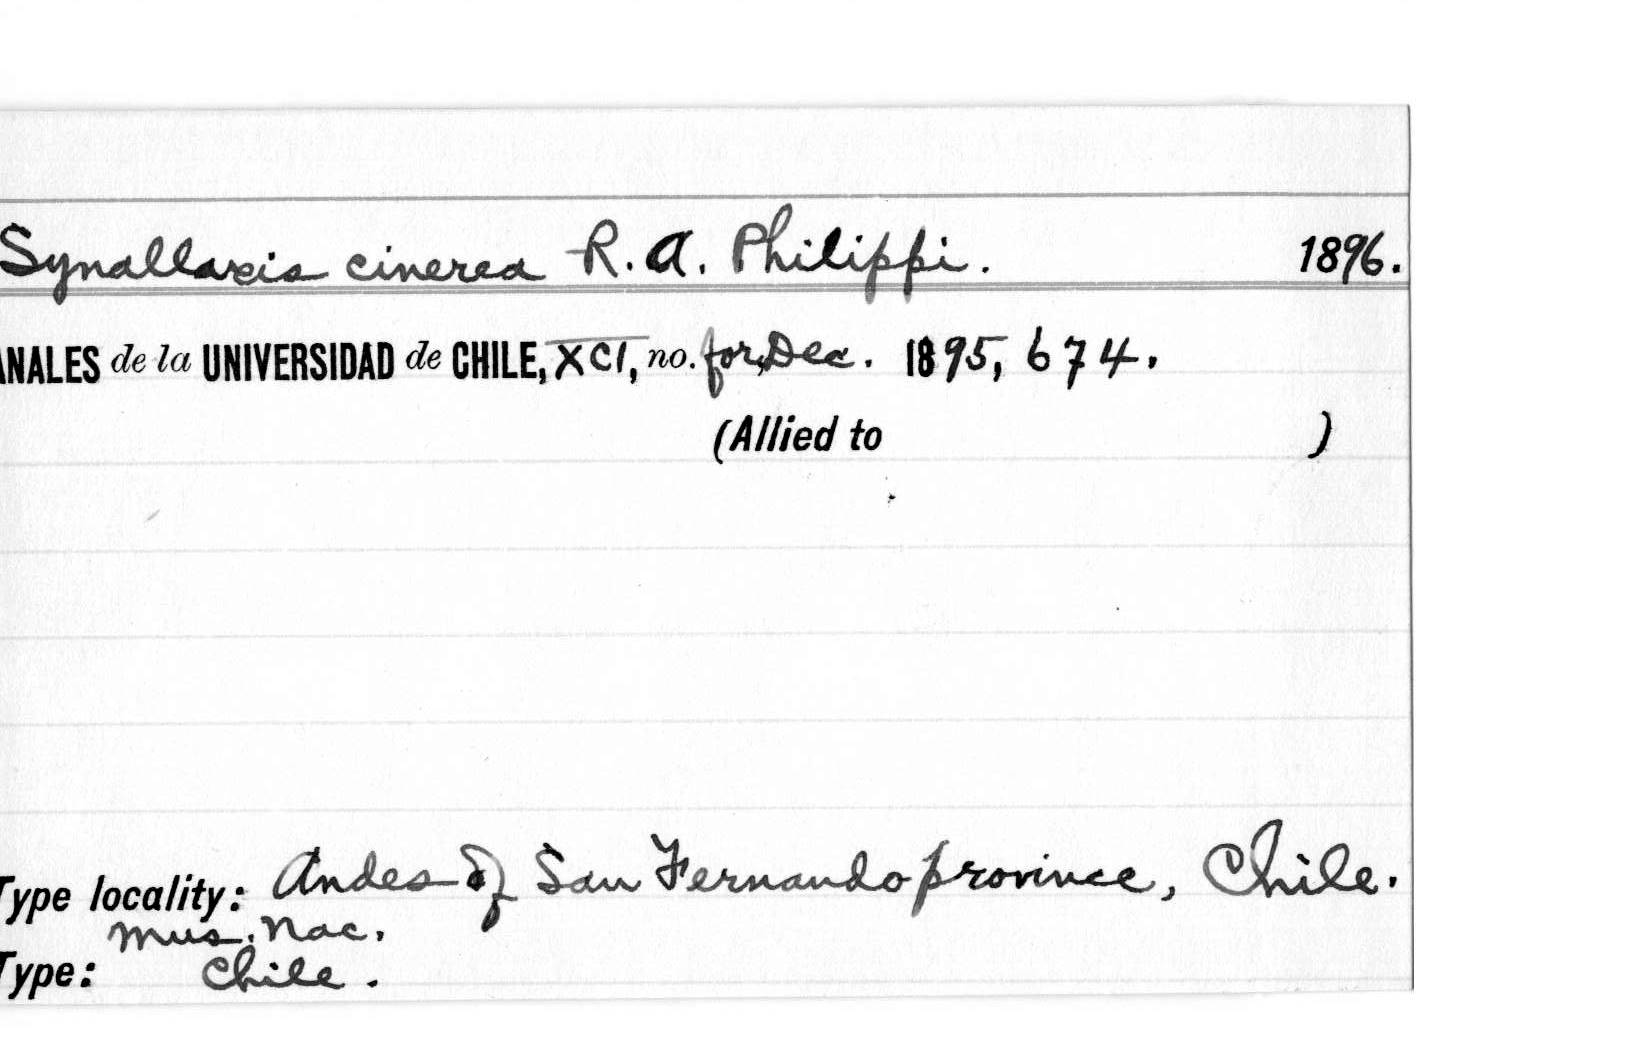 Synallaxis cinerea R. A. Philippi. 1896.
ANALES de la UNIVERSIDAD de CHILE, XCI, no. for, Dec. 1895, 674.
(Allied to )
Type locality: Andes of San Fernando province, Chile.
Mus. Nac.
Type: Chile.